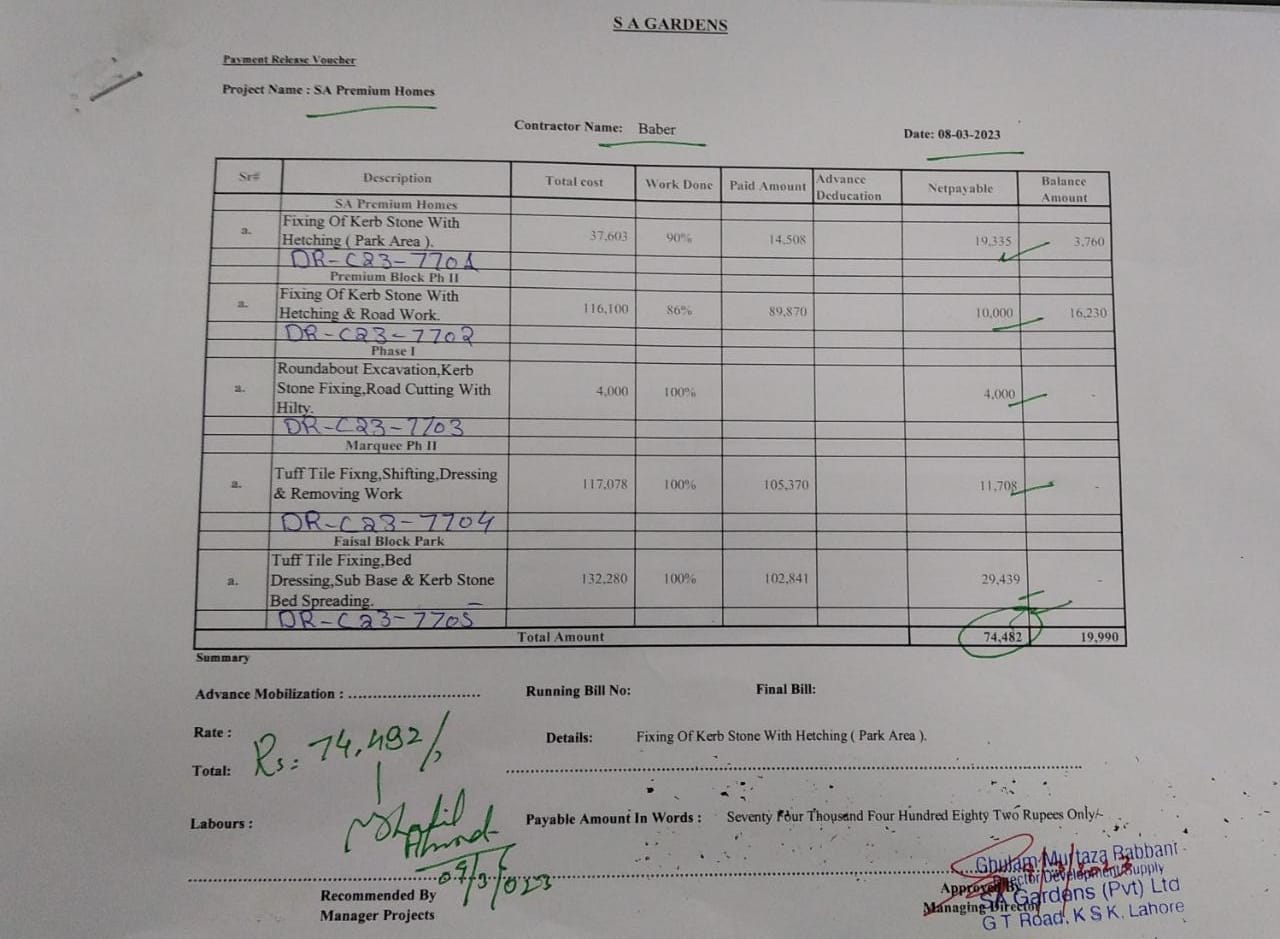 S A GARDENS
Payment Release Voucher
Project Name : SA Premium Homes
Contractor Name: Baber
Date: 08-03-2023
Sr# Description Total cost Work Done Paid Amount Advance Deducation Netpayable Balance Amount
SA Premium Homes
a. Fixing Of Kerb Stone With Hetching ( Park Area ). 37,603 90% 14,508 19,335 3,760
DR-C23-7701
Premium Block Ph II
a. Fixing Of Kerb Stone With Hetching & Road Work. 116,100 86% 89,870 10,000 16,230
DR-C23-7702
Phase I
a. Roundabout Excavation,Kerb Stone Fixing,Road Cutting With Hilty. 4,000 100% 4,000 -
DR-C23-7703
Marquee Ph II
a. Tuff Tile Fixng,Shifting,Dressing & Removing Work 117,078 100% 105,370 11,708 -
DR-C23-7704
Faisal Block Park
a. Tuff Tile Fixing,Bed Dressing,Sub Base & Kerb Stone Bed Spreading. 132,280 100% 102,841 29,439 -
DR-C23-7705
Total Amount 74,482 19,990
Summary
Advance Mobilization : ........................... Running Bill No: Final Bill:
Rate : Details: Fixing Of Kerb Stone With Hetching ( Park Area ).
Rs: 74,482/
Total:
Labours : Payable Amount In Words : Seventy Four Thousand Four Hundred Eighty Two Rupees Only/-
Ahmad
09/3/023
Recommended By
Manager Projects
Approved By
Managing Director
Ghulam Murtaza Babbani
Director Development Supply
SA Gardens (Pvt) Ltd
G T Road, K S K, Lahore